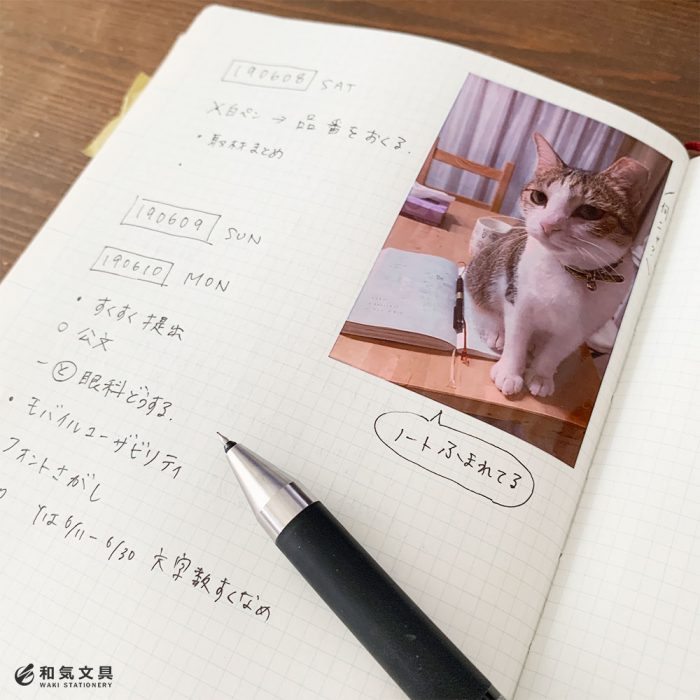 190608 SAT
×白ペン→品番をおくる.
・取材まとめ
190609 SUN
190610 MON
・すくすく提出
○公文
-と眼科どうする.
・モバイルユーザビリティ
フォントさがし
6/11-6/30 文字数すくなめ
ノートふまれてる
和気文具
WAKI STATIONERY